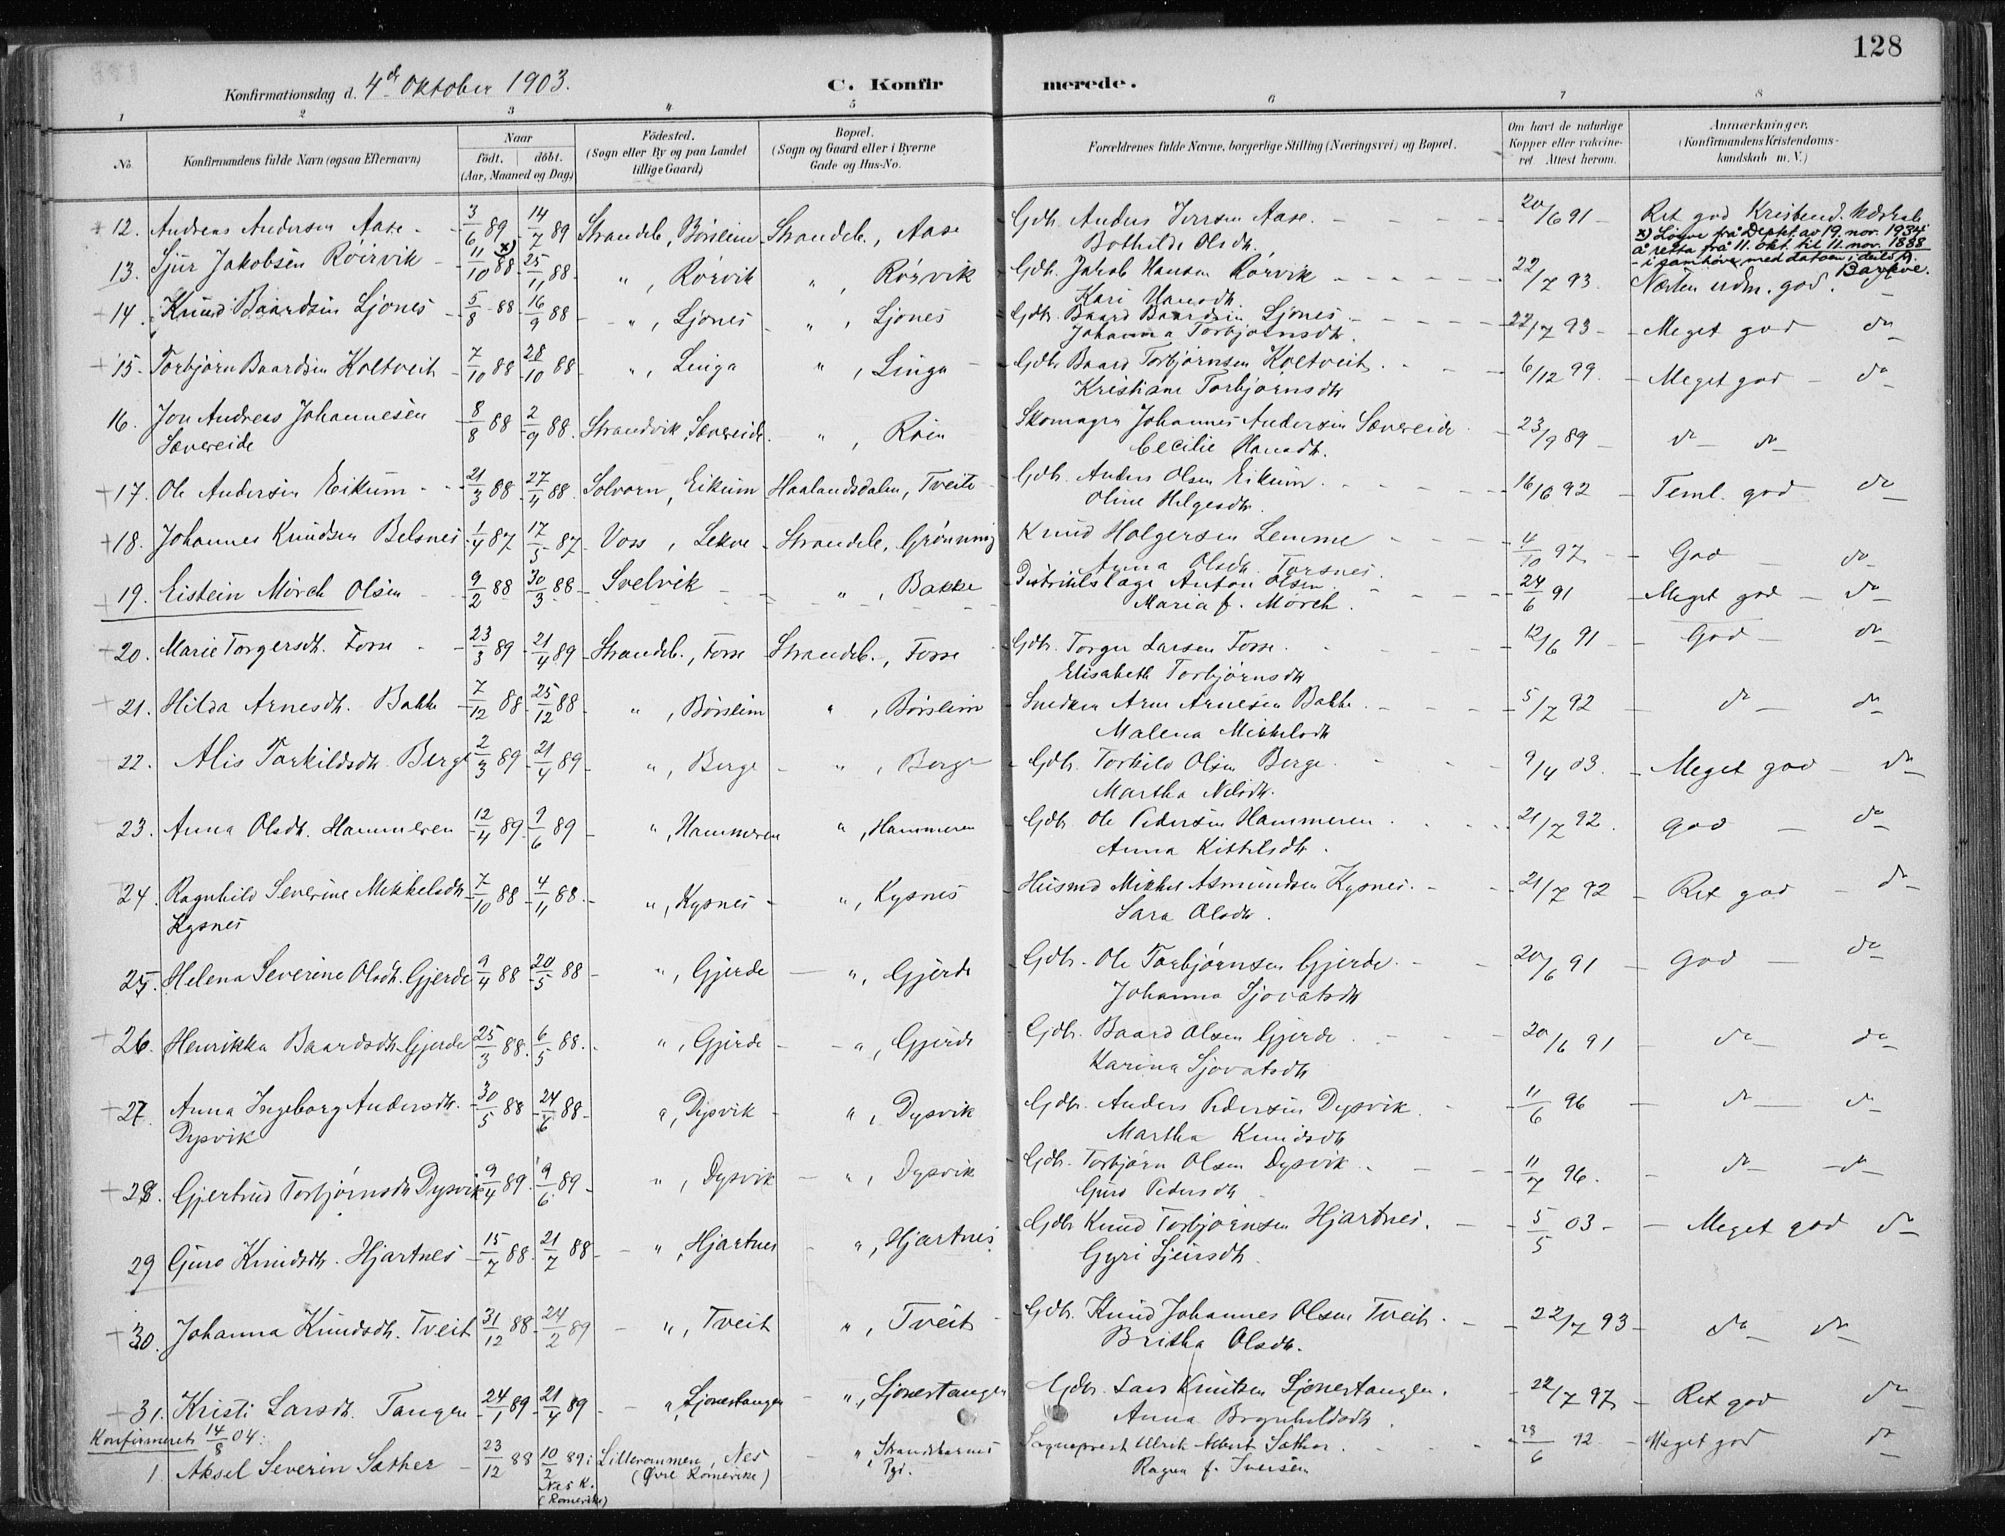 128
Konfirmationsdag d. 4de Oktober 1903.
C. Konfirmerede.
1 2 3 4 5 6 7 8
No. Konfirmandens fulde Navn (ogsaa Efternavn) Naar født. døbt. (Aar, Maaned og Dag) Fødested. (Sogn eller By og paa Landet tillige Gaard) Bopæl. (Sogn og Gaard eller i Byerne Gade og Hus-No. Forældrenes fulde Navne, borgerlige Stilling (Næringsvei) og Bopæl. Om havt de naturlige Kopper eller vakcineret. Attest herom. Anmærkninger. (Konfirmandens Kristendomskundskab m.V.)
12. Andreas Andersen Aase 3/6 89 14/7 89 Strandeb., Børsheim Strandeb., Aase Gdb. Anders Iversen Aase. 20/6 91 Ret god Kristend. Kdskab
Bothilde Olsdtr. x) Løyve frå Depkt. av 19. nov. 1934
å retta frå 11. okt. til 11. nov. 1888
- i samhøve med datoen i dåps
13. Sjur Jakobsen Röirvik 11/10 88 x) 25/11 88 " , Rørvik " , Rørvik Gdb. Jakob Hansen Rørvik 22/7 93. Næsten udm. god.
Kari Hansdtr.
14. Knud Baardsen Ljones 5/8 88 16/9 88 " , Ljones " , Ljones Gdb. Baard Baardsen Ljones 22/7 93 Meget god do
Johanna Torbjørnsdtr.
15. Torbjørn Baardsen Koltveit 7/10 88 28/10 88 " , Linga " , Linga Gdb. Baard Torbjørnsen Koltveit 6/12 99. Meget god do
Kristiane Torbjørnsdtr
16. Jon Andreas Johannesen 8/8 88 2/9 88. Strandvik, Sævereide. " , Röen Skomager Johannes Andersen Sævereide 23/9 89 do do
Sævereide Cecilie Hansdtr.
17. Ole Andersen Eikum 21/3 88 27/4 88. Solvorn, Eikum Haalandsdalen, Tveite Gdb. Anders Olsen Eikum 16/6 92 Teml. god do
Oline Helgesdtr.
18. Johannes Knudsen Belsnes 1/4 87 17/5 87 Voss, Lekve Strandeb., Grønning Knud Holgersen Lemme 4/10 97 God do
Anna Olsdtr. Torsnes.
19. Eistein Mörch Olsen 9/2 88 30/3 88 Svelvik " , Bakke Distriktslæge Anton Olsen 24/6 91 Meget god do
Maria f. Mörch.
20. Marie Torgersdtr. Fosse 23/3 89 21/4 89 Strandeb., Fosse Strandeb., Fosse Gdb. Torger Larsen Fosse. 12/6 91 God do
Elisabeth Torbjørnsdtr
21. Hilda Arnesdtr. Bakke 7/12 88 25/12 88 " , Börsheim " , Börsheim Snedker Arne Arnesen Bakke 5/7 92 do do
Malena Mikkelsdtr
22. Alis Torkildsdtr. Berge 2/3 89 21/4 89 " , Berge " , Berge Gdb. Torkild Olsen Berge. 9/4 03. Meget god do
Martha Nilsdtr.
23. Anna Olsdtr. Hammeren 12/4 89 9/6 89 " , Hammeren " , Hammeren Gdb. Ole Pedersen Hammeren 21/7 92. God do
Anna Kittelsdtr.
24. Ragnhild Severine Mikkelsdtr 7/10 88 4/11 88. " , Kysnes " , Kysnes Husmd Mikkel Asmundsen Kysnes. 21/7 92 Ret god do
Kysnes Sara Olsdtr.
25. Helena Severine Olsdtr. Gjerde 9/4 88 20/5 88 " , Gjerde " , Gjerde Gdb. Ole Torbjørnsen Gjerde. 20/6 91 God do
Johanna Sjovatsdtr
26. Henrikka Baardsdtr. Gjerde 25/3 88. 6/5 88. " , Gjerde " , Gjerde Gdb. Baard Olsen Gjerde 20/6 91 do do
Karina Sjovatsdtr
27. Anna Ingeborg Andersdtr. 30/5 88 24/6 88 " , Dysvik " , Dysvik Gdb. Anders Pedersen Dysvik. 11/6 96 do do
Dysvik Martha Knudsdtr
28. Gjertrud Torbjørnsdtr Dysvik 9/4 89 9/6 89 " , Dysvik " , Dysvik Gdb. Torbjørn Olsen Dysvik 11/7 96. do do
Guro Pedersdtr
29 Guro Knudsdtr. Hjartnes 15/7 88. 21/7 88 " , Hjartnes " , Hjartnes Gdb. Knud Torbjørnsen Hjartnes. 5/5 03 Meget god do
Gyri Sjursdtr
30. Johanna Knudsdtr. Tveit 31/12 88 24/2 89 " , Tveit " , Tveit Gdb. Knud Johannes Olsen Tveit. 22/7 93 do do
Britha Olsdtr.
31. Kristi Larsdtr. Tangen 24/1 89 21/4 89 " , Ljonestangen " , Ljonestangen Gdb. Lars Knutsen Ljonestangen. 22/7 97 Ret god do
Anna Brynhildsdtr.
Konfirmeret 14/8 04:
1. Aksel Severin Sæther 23/12 88 10/2 89: Lillerommen, Nes " Strandebarmes Sogneprest Ulrik Albert Sæther. 28/6 92 Meget god do
Nes K. (Øvre Romerike) Pgd. Ragna f. Iversen
(Romerike)